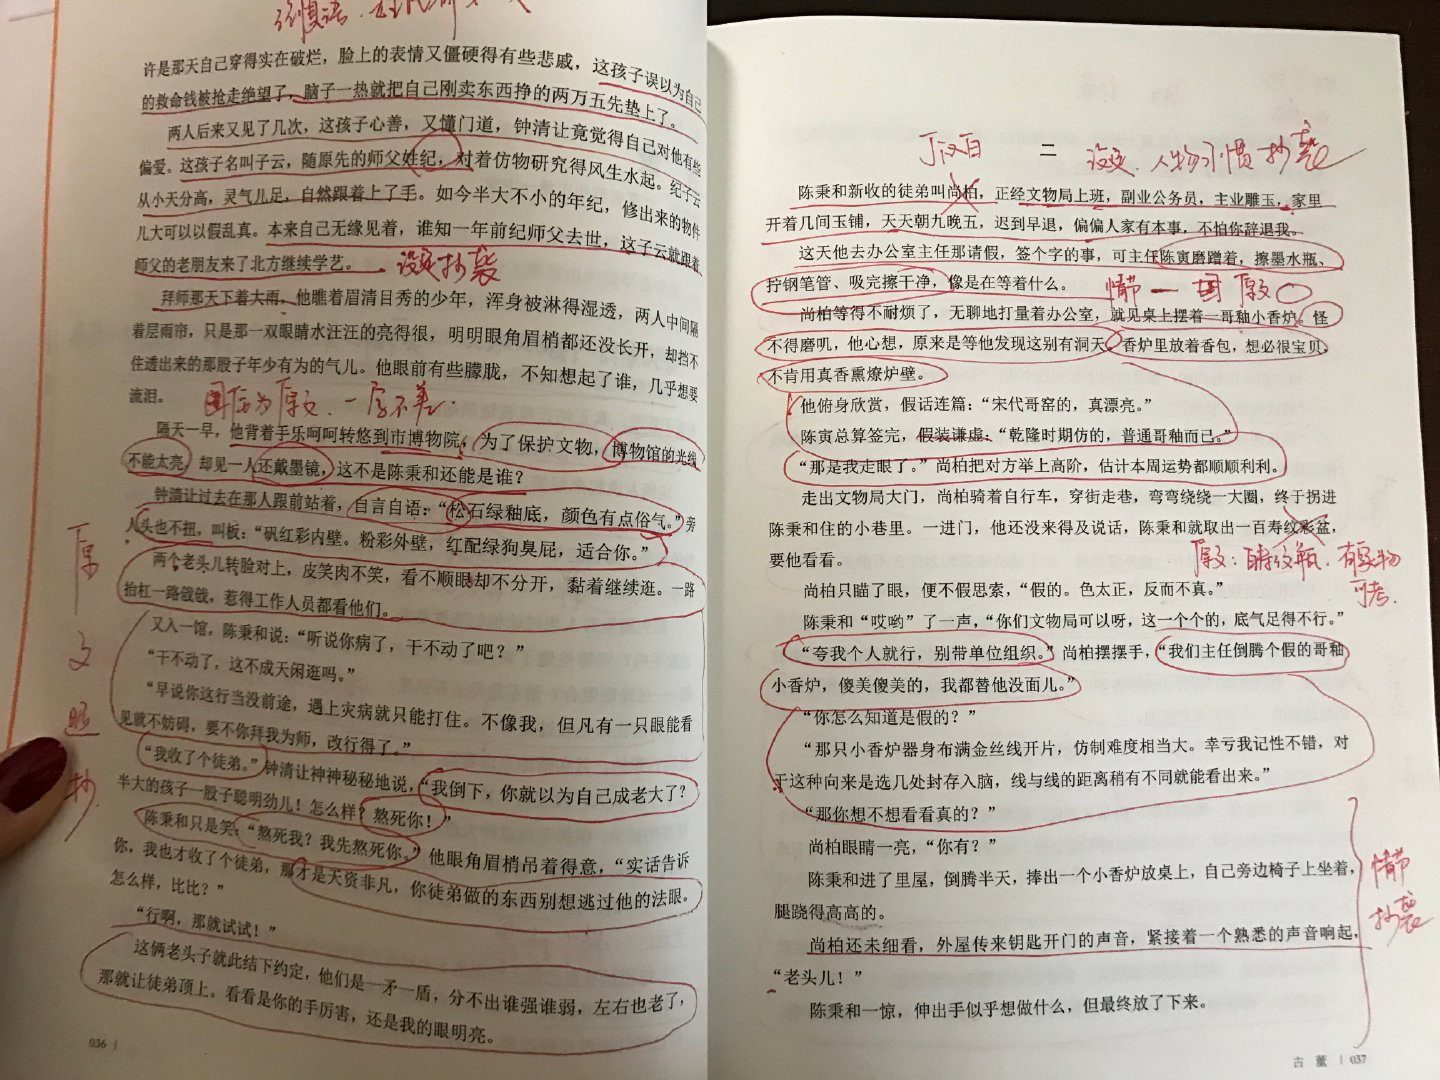 许是那天自己穿得实在破烂，脸上的表情又僵硬得有些悲戚，这孩子误以为自己
的救命钱被抢走绝望了，脑子一热就把自己刚卖东西挣的两万五先垫上了。
两人后来又见了几次，这孩子心善，又懂门道，钟清让竟觉得自己对他有些
偏爱。这孩子名叫子云，随原先的师父姓纪，对着仿物研究得风生水起。纪子云
从小天分高，灵气儿足，自然跟着上了手。如今半大不小的年纪，修出来的物件
儿大可以以假乱真。本来自己无缘见着，谁知一年前纪师父去世，这子云就跟着
师父的老朋友来了北方继续学艺。
设定抄袭
拜师那天下着大雨，他瞧着眉清目秀的少年，浑身被淋得湿透，两人中间隔
着层雨帘，只是那一双眼睛水汪汪的亮得很，明明眼角眉梢都还没长开，却挡不
住透出来的那股子年少有为的气儿。他眼前有些朦胧，不知想起了谁，几乎想要
流泪。
圈后为原文，一字不差．
隔天一早，他背着手乐呵呵转悠到市博物院，为了保护文物，博物馆的光线
不能太亮，却见一人还戴墨镜，这不是陈秉和还能是谁？
钟清让过去在那人跟前站着，自言自语：“松石绿釉底，颜色有点俗气。”旁
人头也不扭，叫板：“矾红彩内壁。粉彩外壁，红配绿狗臭屁，适合你。”
两个老头儿转脸对上，皮笑肉不笑，看不顺眼却不分开，黏着继续逛。一路
抬杠一路戗戗，惹得工作人员都看他们。
又入一馆，陈秉和说：“听说你病了，干不动了吧？”
“干不动了，这不成天闲逛吗。”
“早说你这行当没前途，遇上灾病就只能打住。不像我，但凡有一只眼能看
见就不妨碍，要不你拜我为师，改行得了。”
“我收了个徒弟。”钟清让神神秘秘地说，“我倒下，你就以为自己成老大了？
半大的孩子一股子聪明劲儿！怎么样？熬死你！”
陈秉和只是笑：“熬死我？我先熬死你。”他眼角眉梢吊着得意，“实话告诉
你，我也才收了个徒弟，那才是天资非凡，你徒弟做的东西别想逃过他的法眼。
怎么样，比比？”
“行啊，那就试试！”
这俩老头子就此结下约定，他们是一矛一盾，分不出谁强谁弱，左右也老了，
那就让徒弟顶上。看看是你的手厉害，还是我的眼明亮。
原文照抄
036
丁汉白
二
设定、人物习惯抄袭
陈秉和新收的徒弟叫尚柏，正经文物局上班，副业公务员，主业雕玉，家里
开着几间玉铺，天天朝九晚五，迟到早退，偏偏人家有本事，不怕你辞退我。
这天他去办公室主任那请假，签个字的事，可主任陈寅磨蹭着，擦墨水瓶、
拧钢笔管、吸完擦干净，像是在等着什么。
情节一 圈原文○
尚柏等得不耐烦了，无聊地打量着办公室，就见桌上摆着一哥釉小香炉。怪
不得磨叽，他心想，原来是等他发现这别有洞天。香炉里放着香包，想必很宝贝，
不肯用真香熏燎炉壁。
他俯身欣赏，假话连篇：“宋代哥窑的，真漂亮。”
陈寅总算签完，假装谦虚：“乾隆时期仿的，普通哥釉而已。”
“那是我走眼了。”尚柏把对方举上高阶，估计本周运势都顺顺利利。
走出文物局大门，尚柏骑着自行车，穿街走巷，弯弯绕绕一大圈，终于拐进
陈秉和住的小巷里。一进门，他还没来得及说话，陈秉和就取出一百寿纹彩盆，
要他看看。
原文：百寿纹瓶．有实物
可考．
尚柏只瞄了眼，便不假思索，“假的。色太正，反而不真。”
陈秉和“哎哟”了一声，“你们文物局可以呀，这一个个的，底气足得不行。”
“夸我个人就行，别带单位组织。”尚柏摆摆手，“我们主任倒腾个假的哥釉
小香炉，傻美傻美的，我都替他没面儿。”
“你怎么知道是假的？”
“那只小香炉器身布满金丝线开片，仿制难度相当大。幸亏我记性不错，对
于这种向来是选几处封存入脑，线与线的距离稍有不同就能看出来。”
“那你想不想看看真的？”
尚柏眼睛一亮，“你有？”
陈秉和进了里屋，倒腾半天，捧出一个小香炉放桌上，自己旁边椅子上坐着，
腿跷得高高的。
尚柏还未细看，外屋传来钥匙开门的声音，紧接着一个熟悉的声音响起，
“老头儿！”
陈秉和一惊，伸出手似乎想做什么，但最终放了下来。
情节
抄袭
古董 037